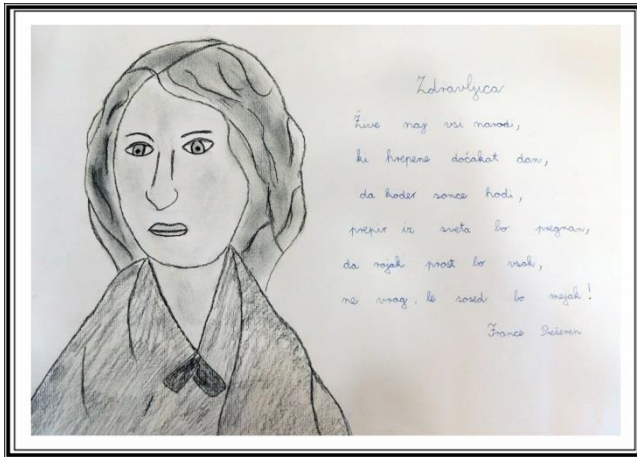 Zdravljica
Žive naj vsi narodi,
ki hrepene dočakat dan,
da koder sonce hodi,
prepir iz sveta bo pregnan,
da rojak prost bo vsak,
ne vrag, le sosed bo mejak!
France Prešeren